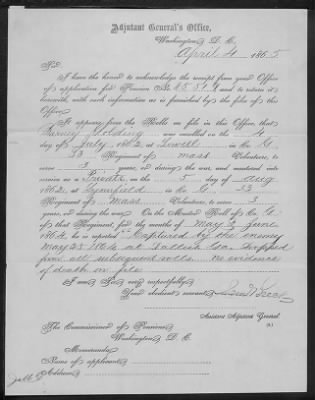 Adjutant General's Office,
Washington, D. C.
April 4 1865
Sir:
I have the honor to acknowledge the receipt from your Office
of application for Pension No. and to return it
herewith, with such information as is furnished by the files of this
Office.
It appears from the Rolls on file in this Office, that
was enrolled on the 4
day of July, 1862, at Lowell in Co. G
33 Regiment of Mass Volunteers, to
serve 3 years, or during the war, and mustered into
service as a Private on the 5 day of Aug
1862, at Lynnfield in Co. G 33
Regiment of Mass Volunteers, to serve 3
years, or during the war. On the Muster Roll of Co. G
of that Regiment, for the months of May & June
1864, he is reported "Captured by the enemy
May 25 1864 at Dallas Ga. Dropped
from all subsequent rolls. no evidence
of death on file
I am, Sir, very respectfully,
Your obedient servant,
Assistant Adjutant General.
The Commissioner of Pensions
Washington, D. C.
Memoranda
Name of applicant
Address